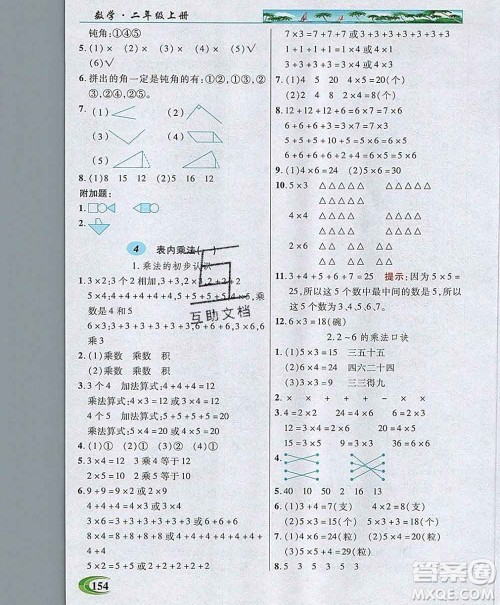 数学·二年级上册
钝角:①④⑤
5.(1)× (2)× (3)√ (4)×
6.拼出的角一定是钝角的有:①②,①③,
②③,②⑤,②④。
7.(1) (2)
(3) (4)
(5) (6)
8.(1)8 5 15 12
附加题:
1.
2.
4 表内乘法(
1.乘法的初步认识
1.3×2;3个2
数是4和5
2.(1)乘数 乘数 积
(2)乘数 乘数 积
3.3个4 加法算式:4+4+4=12
乘法算式:4×3=12或3×4=12
4个5 加法算式:5+5+5+5=20
乘法算式:5×4=20或4×5=20
4.(1)× (2)√ (3)× (4)×
5.3×4=12 3乘4等于12
6.9+9=18或2×9=18或9×2=18
8+8=16或2×8=16或8×2=16
7+7=14或2×7=14或7×2=14
6+6=12或2×6=12或6×2=12
5×2=10或2×5=10或5+5=10
154
7×3=7+7+7或3+3+3+3+3+3+3
1×4=1+1+1+1或4
3×4=3+3+3+3或4+4+4
7.(1)4 5 4×5=20(个)
(2)4 2 2×4=8(个)
8.12+12+12+6=7×6
6+6+6+3+3=3×8
3+3+3+3+6=3×6
5+5+5+5+10=5×6
9.(1)4×6=24 (2)5×6=30
10.5×3 △△△△△ △△△△△
△△△△△
4×6
11.3+4+5+6+7=25 提示:因为5×5=
25,所以这5个数中最中间的数是5,所以
这5个数为3,4,5,6,7。
12.6×3=18(碗)
2.2~6的乘法口诀
1.(1)5×3=15 三五十五
(2)4×6=24 四六二十四
(3)3×3=9 三三得九
2.× − + ×
3.4=4 12<16 20>10 9>6
15=15 24>18 30>11 16>8
4.
5.40 10 50 2 15 24
6.(1)3+1=4(支) 4×2=8(支)
(2)3×5=15(个)
7.(1)5×4=20(粒)
(2)5×5=25(粒)
8.5 1 2 3 3 6
互助文档
答案圈
MXQE.COM